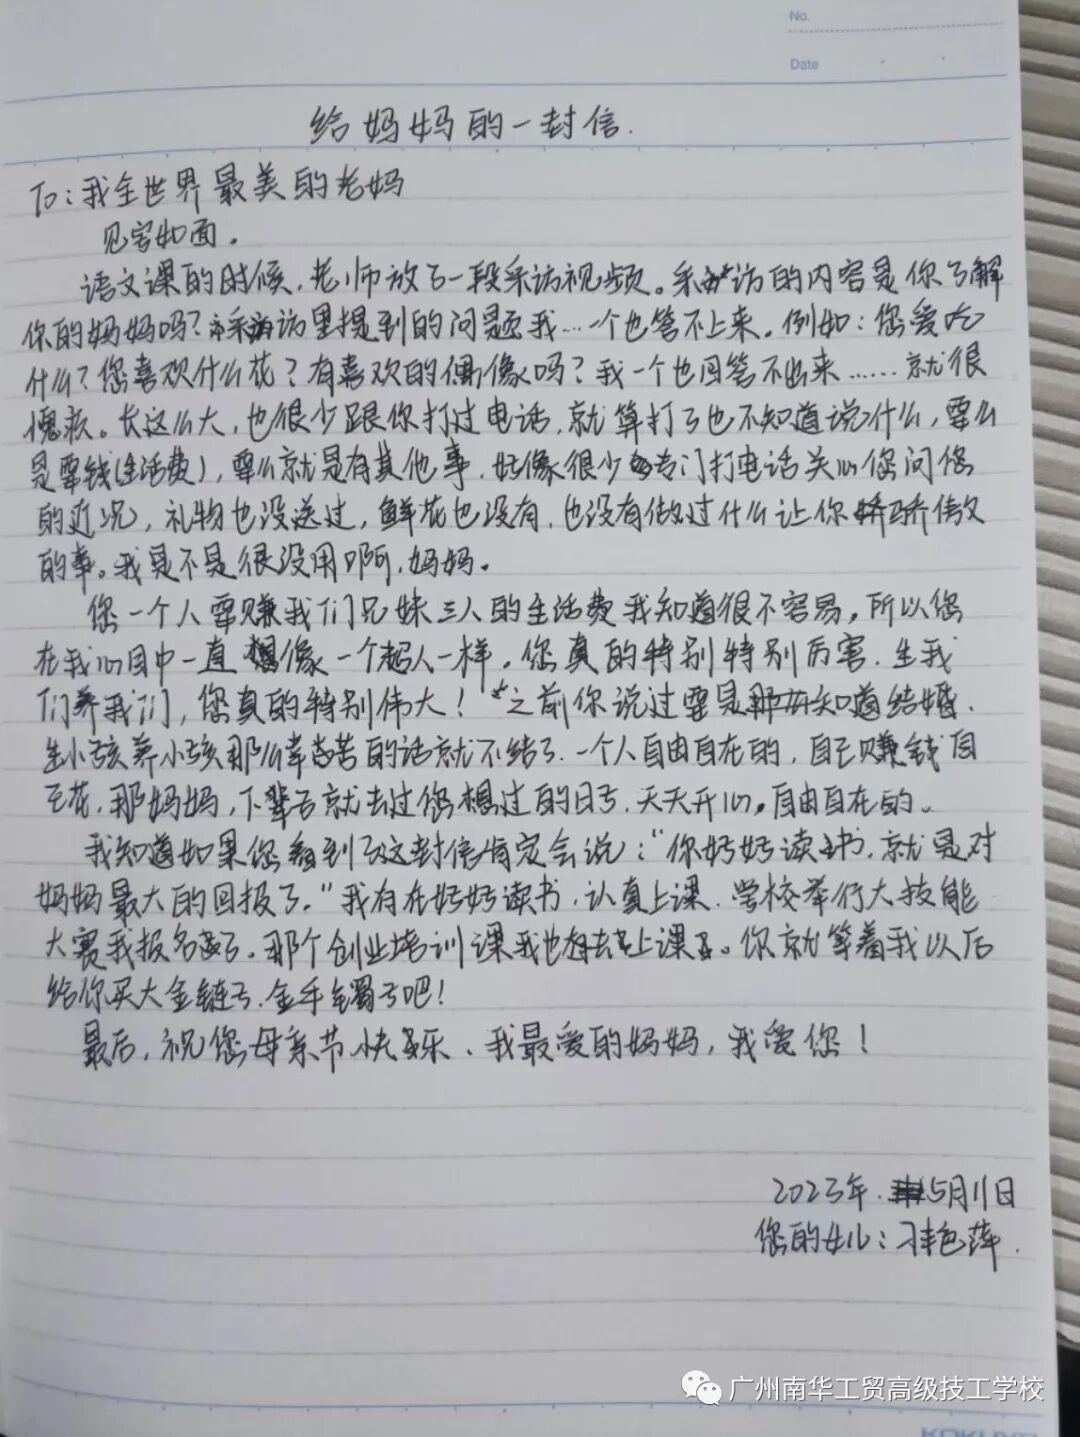 No.
Date
给妈妈的一封信.
To：我全世界最美的老妈
见字如面。
语文课的时候，老师放了一段采访视频。采访的内容是你了解
你的妈妈吗？采访里提到的问题我…一个也答不上来。例如：您爱吃
什么？您喜欢什么花？有喜欢的偶像吗？我一个也回答不出来……就很
愧疚。长这么大，也很少跟你打过电话，就算打了也不知道说什么，要么
是要钱(生活费)，要么就是有其他事，好像很少专门打电话关心您问您
的近况，礼物也没送过，鲜花也没有，也没有做过什么让你骄傲
的事。我是不是很没用啊，妈妈。
您一个人要赚我们兄妹三人的生活费我知道很不容易，所以您
在我心目中一直像一个超人一样。您真的特别特别厉害，生我
们养我们，您真的特别伟大！之前你说过要是知道结婚，
生小孩养小孩那么辛苦的话就不结了，一个人自由自在的，自己赚钱自
己花，那妈妈，下辈子就去过您想过的日子，天天开心，自由自在的。
我知道如果您看到了这封信肯定会说：“你好好读书，就是对
妈妈最大的回报了。”我有在好好读书，认真上课，学校举行大技能
大赛我报名了。那个创业培训课我也有去上课。你就等着我以后
给你买大金链子，金手镯子吧！
最后，祝您母亲节快乐、我最爱的妈妈，我爱您！
2023年.5月11日
您的女儿：艳萍.
广州南华工贸高级技工学校
KOKUYO